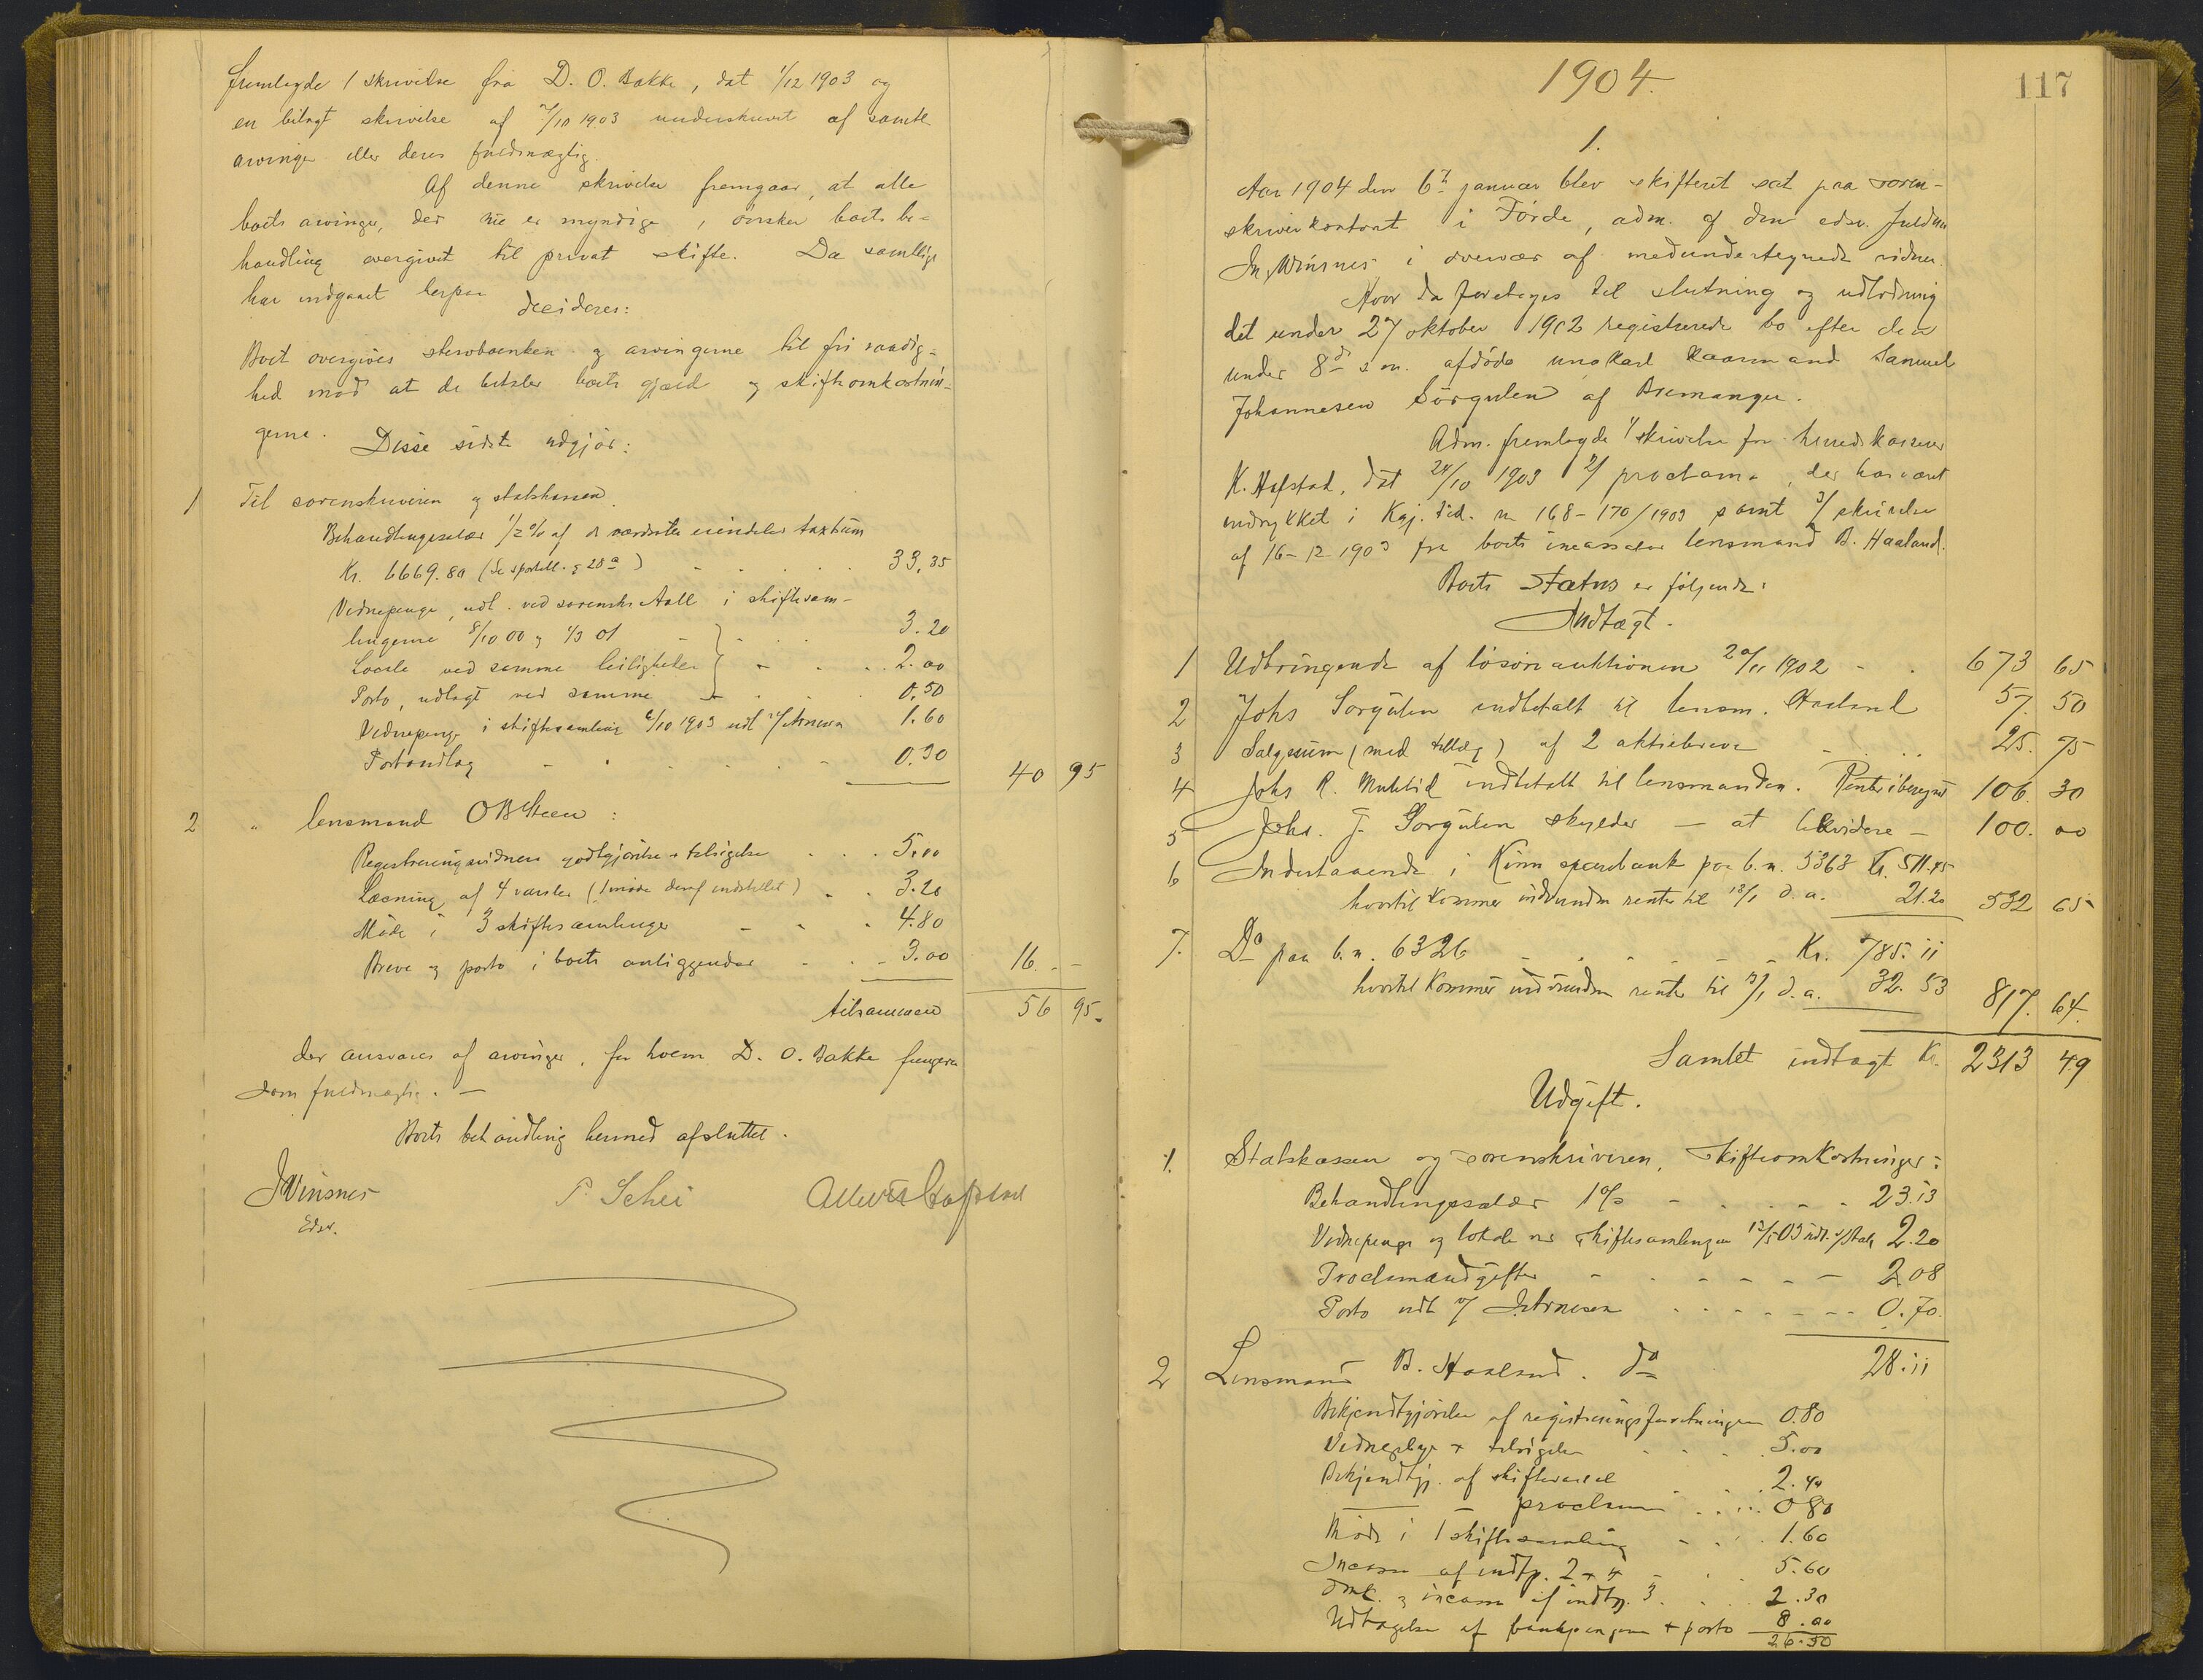 fremlagde 1 skrivelse fra D. O. Bakke, dat 1/12 1903 og
en bilagt skrivelse af 7/10 1903 underskrevet af samtl
arvinger eller deres fuldmægtig.
Af denne skrivelse fremgaar, at alle
boets arvinger, der nu er myndige, ønsker boets be-
handling overgivet til privat skifte. Da samtlige
har indgaaet herpaa
decideres:
Boet overgives sterboenken og arvingerne til fri raadig-
hed mod at de betaler boets gjæld og skifteomkostnin-
gerne.
Disse sidste udgjør:
1 Til sorenskriveren og statskassen
Behandlingssalær 1/2 % af
Kr. 6669.80 (se sportell. § 28 a) 33,35
Vidnepenge, udl. ved sorenskr Aall i skiftesam-
lingerne 8/10 00 og 1/3 01 3.20
Locale ved samme leiligheder 2.00
Porto, udlagt ved samme 0.50
Vidnepenge i skiftesamling 6/10 1903 udl 1.60
Portoudlæg 0.30
40 95
2 " lensmand O B Steen:
Registreringsvidners godtgjørelse + tilsigelse 5.00
Læsning af 4 varsler (1 3.20
Møde i 3 skiftesamlinger 4.80
Breve og porto i boets anliggender 3.00
16. --
tilsammen 56 95.
der ansvares af arvinger, for hvem D. O. Bakke fungerer
som fuldmægtig. —
Boets behandling hermed afsluttet.
J Vinsnes P. Schei
Edsv.
117
1904.
1.
Aar 1904 den 6te januar blev skifteret sat paa soren-
skriverkontoret i Førde, adm. af den edsv. fuldm
Vinsnes i overvær af medundertegnede vidner.
Hvor da foretages til slutning og udlodning
det under 27 oktober 1902 registrerede bo efter den
under 8de s m. afdøde ungkarl kaarmand Samuel
Johannesen Sørgulen af Bremanger.
Adm. fremlagde 1/ skrivelse fra herredskasserer
K. Hafstad, dat 24/10 1903 2/ proclama, der har været
indrykket i Kgj. tid. n 168-170/1903 samt 3/ skrivelse
af 16-12 1903 fra boets incassator lensmand B. Haaland.
Boets Status er følgende:
Indtægt.
1 Udbringende af løsøreauktionen 20/11 1902 673 65
2 Johs Sørgulen indbetalt til lensm. Haaland 57. 50
3 Salgssum (med tillæg) af 2 aktiebreve 25. 75
4 Johs R. indbetalt til lensmanden. Renter iberegnet 106. 30
5 Johs. J. Sørgulen skylder — at likvidere — 100. 00
6 Indestaaende i Kinn sparebank paa b.n. 5363 Kr. 511.45
hvortil kommer indvundne renter til 12/1 d.a. 21.20 532 65
7. Do paa b.n. 6326 Kr. 785.11
hvortil kommer indvundne renter til 12/1 d.a. 32.53 817. 64.
Samlet indtægt Kr. 2313 49
Udgift.
1. Statskassen og sorenskriveren, skifteomkostninger:
Behandlingssalær 1% 23.13
Vidnepenge og lokale ved skiftesamlingen 12/5 03 udl. 2.20
Proclamaudgifter 2.08
Porto udl 0.70.
28.11
2 Lensmand B. Haaland. do
Bekjendtgjørelse af registreringsforretningen 0.80
Vidnepenge + tilsigelse 5.00
Bekjendtgj. af skiftevarsel 2.40
— proclama 0 80
Møde i 1 skiftesamling 1.60
Incasso af indtg. 2 + 4 5.60
Omk. og incasso af indtg. 3. 2.30
Udtagelse af bankpengene + porto 8.00
26.50